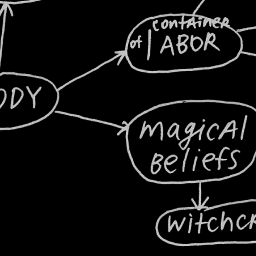 container
of LABOR
ODY
magicAl
Beliefs
witchcr